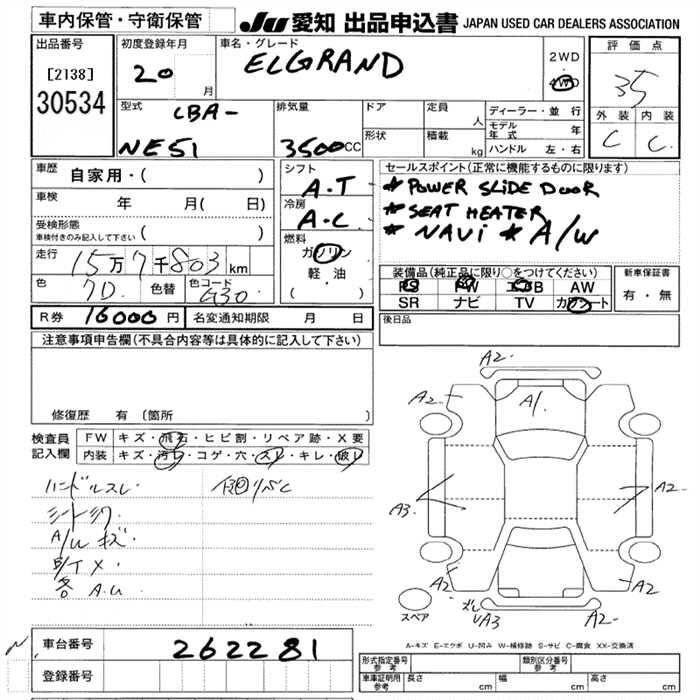 車内保管・守衛保管
JU 愛知 出品申込書 JAPAN USED CAR DEALERS ASSOCIATION
出品番号
[2138]
30534
初度登録年月
20
月
車名・グレード
ELGRAND
2WD
4WD
評価点
35
外装 内装
C C
型式
CBA-
NE51
排気量
3500cc
ドア
形状
定員
人
積載
kg
ディーラー・並行
モデル年式
年
ハンドル 左・右
車歴
自家用・( )
車検
年 月( 日)
受検形態
車検付きのみ記入して下さい ( )
走行 15万7千803km
色 7D 色替 色コード G30
シフト
A.T
冷房
A.C
燃料
ガソリン
軽油
( )
セールスポイント(正常に機能するものに限ります)
* POWER SLIDE DOOR
* SEAT HEATER
* NAVI * A/W
装備品(純正品に限り○をつけてください)
PS PW エアB AW
SR ナビ TV カワシート
新車保証書
有・無
R券 16000円 名変通知期限 月 日
後日品
注意事項申告欄(不具合内容等は具体的に記入して下さい)
修復歴 有(箇所
検査員
記入欄
FW キズ・飛石・ヒビ割・リペア跡・X要
内装 キズ・汚レ・コゲ・穴・スレ・キレ・破レ
ハンドルスレ
A/W キズ
各 A.U
A2
A2
A1
A2
A3
A2
A2
A2
A2
スペア
UA3
A-キズ E-エクボ U-凹み W-補修跡 S-サビ C-腐食 XX-交換済
車台番号 262281
登録番号
形式指定番号
参考
類別区分番号
参考
車庫証明用
参考
長さ cm
幅 cm
高さ cm